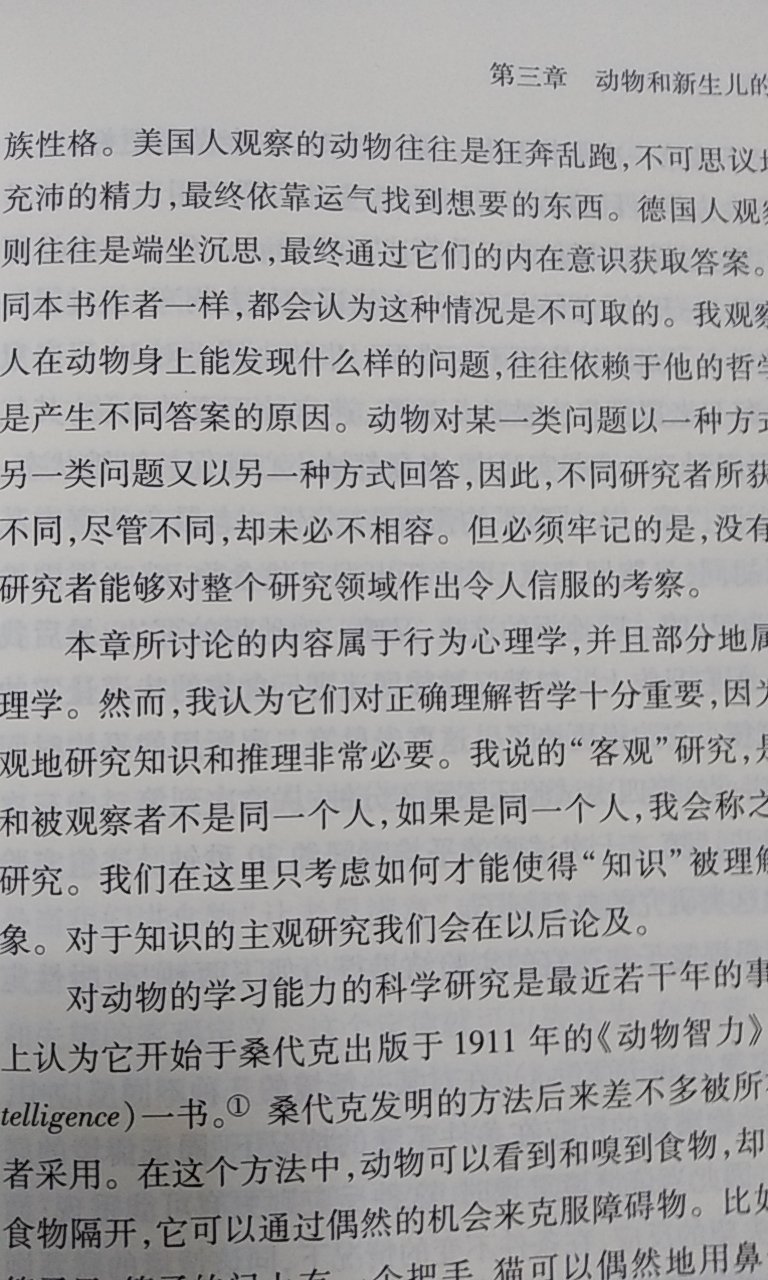 第三章 动物和新生儿的
族性格。美国人观察的动物往往是狂奔乱跑,不可思议
充沛的精力,最终依靠运气找到想要的东西。德国人观察
则往往是端坐沉思,最终通过它们的内在意识获取答案。
同本书作者一样,都会认为这种情况是不可取的。我观察
人在动物身上能发现什么样的问题,往往依赖于他的哲学
是产生不同答案的原因。动物对某一类问题以一种方式
另一类问题又以另一种方式回答,因此,不同研究者所获
不同,尽管不同,却未必不相容。但必须牢记的是,没有
研究者能够对整个研究领域作出令人信服的考察。
本章所讨论的内容属于行为心理学,并且部分地属
理学。然而,我认为它们对正确理解哲学十分重要,因为
观地研究知识和推理非常必要。我说的“客观”研究,是
和被观察者不是同一个人,如果是同一个人,我会称之
研究。我们在这里只考虑如何才能使得“知识”被理解
象。对于知识的主观研究我们会在以后论及。
对动物的学习能力的科学研究是最近若干年的事
上认为它开始于桑代克出版于 1911 年的《动物智力》
telligence)一书。① 桑代克发明的方法后来差不多被所
者采用。在这个方法中,动物可以看到和嗅到食物,却
食物隔开,它可以通过偶然的机会来克服障碍物。比如
一个把手,猫可以偶然地用鼻